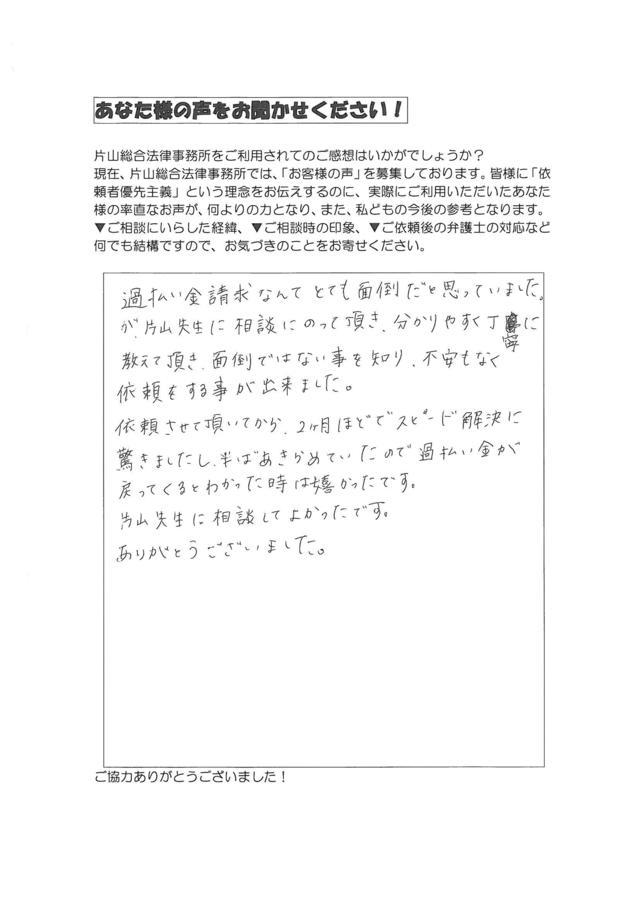 あなた様の声をお聞かせください!
片山総合法律事務所をご利用されてのご感想はいかがでしょうか?
現在、片山総合法律事務所では、「お客様の声」を募集しております。皆様に「依
頼者優先主義」という理念をお伝えするのに、実際にご利用いただいたあなた
様の率直なお声が、何よりの力となり、また、私どもの今後の参考となります。
▼ご相談にいらした経緯、▼ご相談時の印象、▼ご依頼後の弁護士の対応など
何でも結構ですので、お気づきのことをお寄せください。
過払い金請求なんてとても面倒だと思っていました。
が、片山先生に相談にのって頂き、分かりやすく丁寧に
教えて頂き、面倒ではない事を知り、不安もなく
依頼をする事が出来ました。
依頼させて頂いてから、2ヶ月ほどでスピード解決に
驚きましたし、半ばあきらめていたので過払い金が
戻ってくるとわかった時は嬉かったです。
片山先生に相談してよかったです。
ありがとうございました。
ご協力ありがとうございました!